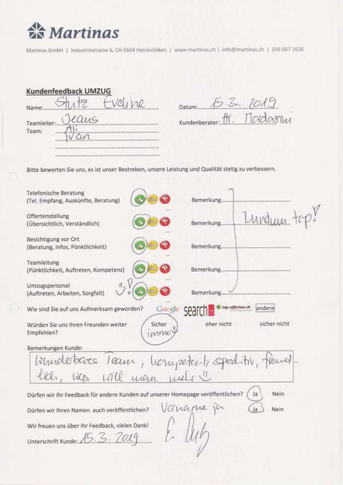 Martinas
Martinas GmbH | Industriestrasse 6, CH-5604 Hendschiken | www.martinas.ch | info@martinas.ch | 056 667 1626
Kundenfeedback UMZUG
Name: Stutz Eveline Datum: 15.3.2019
Teamleiter: Kundenberater: Hr.
Team: Ali
Ivan
Bitte bewerten Sie uns, es ist unser Bestreben, unsere Leistung und Qualität stetig zu verbessern.
Telefonische Beratung
(Tel. Empfang, Auskünfte, Beratung) Bemerkung
Offertenstellung
(Übersichtlich, Verständlich) Bemerkung Rundum top!
Besichtigung vor Ort
(Beratung, Infos, Pünktlichkeit) Bemerkung
Teamleitung
(Pünktlichkeit, Auftreten, Kompetenz) Bemerkung
Umzugspersonal
(Auftreten, Arbeiten, Sorgfalt) Bemerkung
Wie sind Sie auf uns Aufmerksam geworden? Google search top-offerten.ch andere
Würden Sie uns Ihren Freunden weiter Sicher eher nicht sicher nicht
Empfehlen? immer
Bemerkungen Kunde:
Wunderbares Team, kompetent, speditiv, freund-
lich, was will man mehr
Dürfen wir Ihr Feedback für andere Kunden auf unserer Homepage veröffentlichen? Ja Nein
Dürfen wir Ihren Namen auch veröffentlichen? Vorname ja Ja Nein
Wir freuen uns über Ihr Feedback, vielen Dank!
Unterschrift Kunde: 15.3.2019